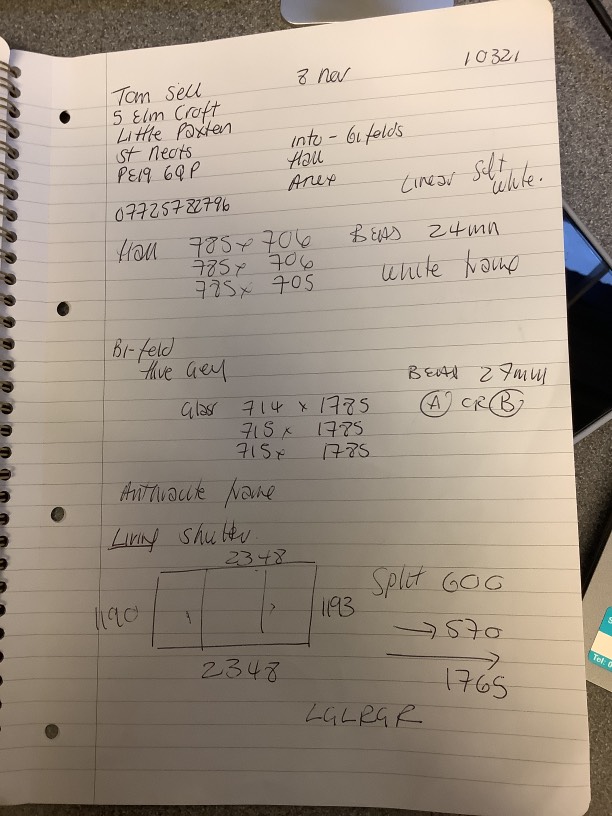 10321
8 nov
Tom Sell
5 Elm Croft
Little Paxten
St Neots
PE19 6QP
07725782796
Into - Gifolds
Hall
Anex
Linear Soft
White.
Hall 785x 706 BEAD 24mm
785x 706
785x 705
White frame
Bi-fold
BEAD 27mm
Glass 714 x 1785 (A) OR (B)
715 x 1785
715x 1785
Anthracite frame
Living Shutter
2348
1190
1193
2348
Split GOG
→ 570
→ 1765
LGLRGR
Tel: 0